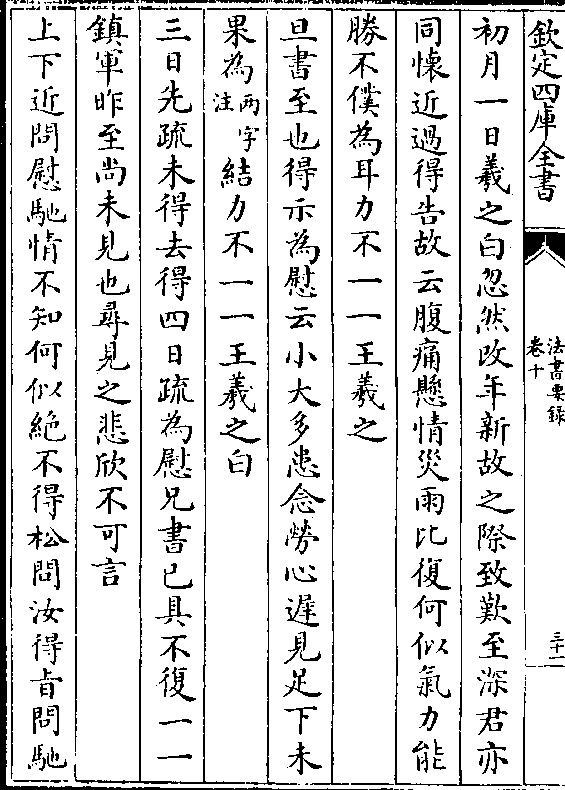 欽定四庫全書
法書要錄
卷十
三十一
初月一日羲之白忽然改年新故之際致歎至深君亦
同懷近過得告故云腹痛懸情災雨比復何似氣力能
勝不僕為耳力不一一王羲之
旦書至也得示為慰云小大多患念勞心遲見足下未
果為兩字注結力不一一王羲之白
三日先疏未得去得四日疏為慰兄書已具不復一一
鎮軍昨至尚未見也尋見之悲欣不可言
上下近問慰馳情不知何似絶不得松問汝得㫖問馳